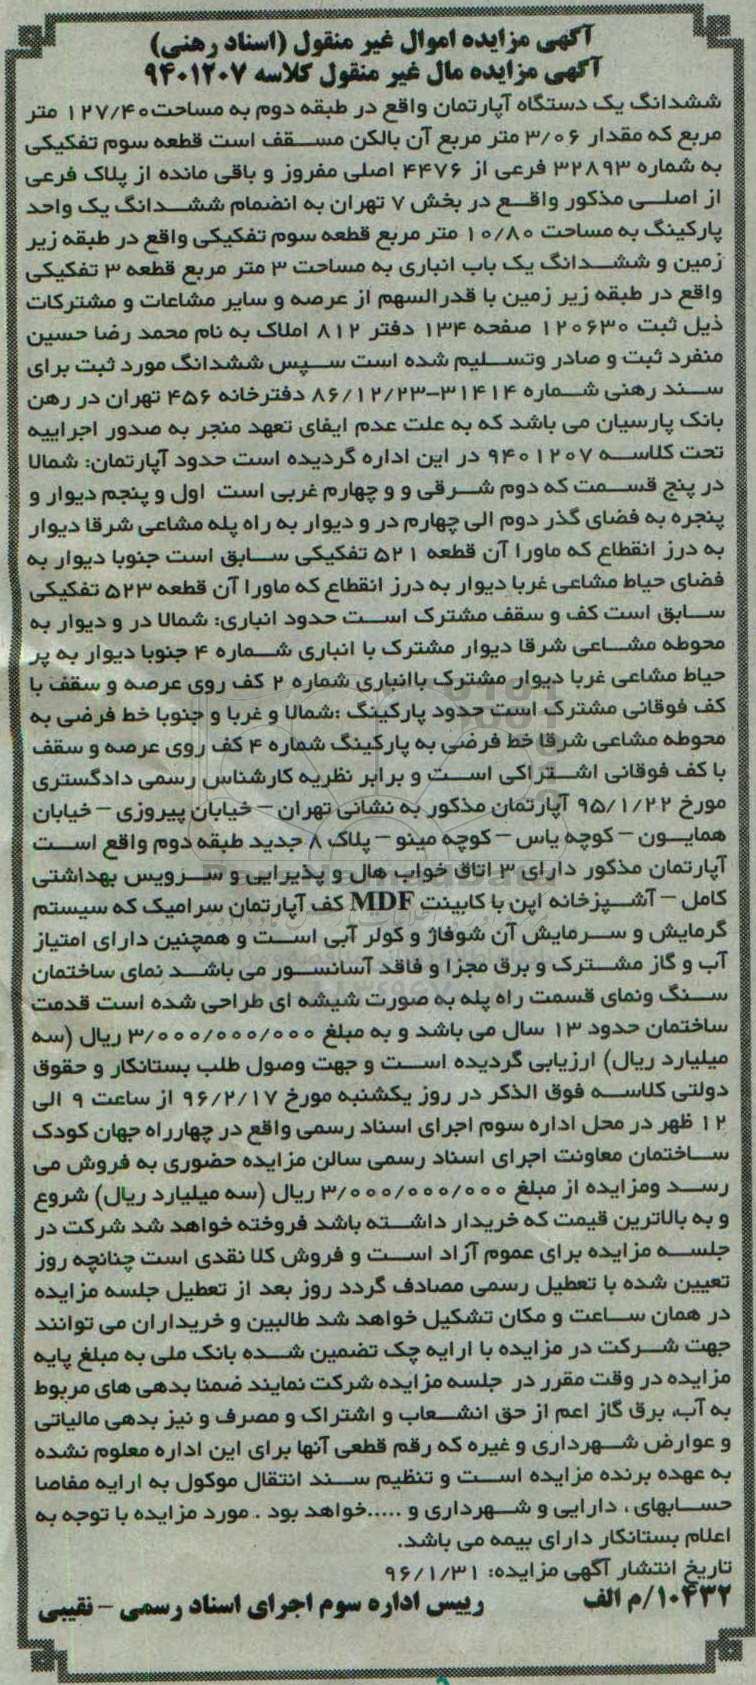 آگهی مزایده اموال غیر منقول (اسناد رهنی)
آگهی مزایده مال غیر منقول کلاسه ۹۴۰۱۲۰۷
ششدانگ یک دستگاه آپارتمان واقع در طبقه دوم به مساحت ۱۲۷/۴۰ متر
مربع که مقدار ۳/۰۶ متر مربع آن بالکن مسقف است قطعه سوم تفکیکی
به شماره ۳۲۸۹۳ فرعی از ۴۴۷۶ اصلی مفروز و باقی مانده از پلاک فرعی
از اصلی مذکور واقع در بخش ۷ تهران به انضمام ششدانگ یک واحد
پارکینگ به مساحت ۱۰/۸۰ متر مربع قطعه سوم تفکیکی واقع در طبقه زیر
زمین و ششدانگ یک باب انباری به مساحت ۳ متر مربع قطعه ۳ تفکیکی
واقع در طبقه زیر زمین با قدرالسهم از عرصه و سایر مشاعات و مشترکات
ذیل ثبت ۱۲۰۶۳۰ صفحه ۱۳۴ دفتر ۸۱۲ املاک به نام محمد رضا حسین
منفرد ثبت و صادر وتسلیم شده است سپس ششدانگ مورد ثبت برای
سند رهنی شماره ۳۱۴۱۴-۸۶/۱۲/۲۳ دفترخانه ۴۵۶ تهران در رهن
بانک پارسیان می باشد که به علت عدم ایفای تعهد منجر به صدور اجراییه
تحت کلاسه ۹۴۰۱۲۰۷ در این اداره گردیده است حدود آپارتمان: شمالا
در پنج قسمت که دوم شرقی و و چهارم غربی است اول و پنجم دیوار و
پنجره به فضای گذر دوم الی چهارم در و دیوار به راه پله مشاعی شرقا دیوار
به درز انقطاع که ماورا آن قطعه ۵۲۱ تفکیکی سابق است جنوبا دیوار به
فضای حیاط مشاعی غربا دیوار به درز انقطاع که ماورا آن قطعه ۵۲۳ تفکیکی
سابق است کف و سقف مشترک است حدود انباری: شمالا در و دیوار به
محوطه مشاعی شرقا دیوار مشترک با انباری شماره ۴ جنوبا دیوار به پر
حیاط مشاعی غربا دیوار مشترک باانباری شماره ۲ کف روی عرصه و سقف با
کف فوقانی مشترک است حدود پارکینگ :شمالا و غربا و جنوبا خط فرضی به
محوطه مشاعی شرقا خط فرضی به پارکینگ شماره ۴ کف روی عرصه و سقف
با کف فوقانی اشتراکی است و برابر نظریه کارشناس رسمی دادگستری
مورخ ۹۵/۱/۲۲ آپارتمان مذکور به نشانی تهران – خیابان پیروزی – خیابان
همایون – کوچه یاس – کوچه مینو – پلاک ۸ جدید طبقه دوم واقع است
آپارتمان مذکور دارای ۳ اتاق خواب هال و پذیرایی و سرویس بهداشتی
کامل – آشپزخانه اپن با کابینت MDF کف آپارتمان سرامیک که سیستم
گرمایش و سرمایش آن شوفاژ و کولر آبی است و همچنین دارای امتیاز
آب و گاز مشترک و برق مجزا و فاقد آسانسور می باشد نمای ساختمان
سنگ ونمای قسمت راه پله به صورت شیشه ای طراحی شده است قدمت
ساختمان حدود ۱۳ سال می باشد و به مبلغ ۳/۰۰۰/۰۰۰/۰۰۰ ریال (سه
میلیارد ریال) ارزیابی گردیده است و جهت وصول طلب بستانکار و حقوق
دولتی کلاسه فوق الذکر در روز یکشنبه مورخ ۹۶/۲/۱۷ از ساعت ۹ الی
۱۲ ظهر در محل اداره سوم اجرای اسناد رسمی واقع در چهارراه جهان کودک
ساختمان معاونت اجرای اسناد رسمی سالن مزایده حضوری به فروش می
رسد ومزایده از مبلغ ۳/۰۰۰/۰۰۰/۰۰۰ ریال (سه میلیارد ریال) شروع
و به بالاترین قیمت که خریدار داشته باشد فروخته خواهد شد شرکت در
جلسه مزایده برای عموم آزاد است و فروش کلا نقدی است چنانچه روز
تعیین شده با تعطیل رسمی مصادف گردد روز بعد از تعطیل جلسه مزایده
در همان ساعت و مکان تشکیل خواهد شد طالبین و خریداران می توانند
جهت شرکت در مزایده با ارایه چک تضمین شده بانک ملی به مبلغ پایه
مزایده در وقت مقرر در جلسه مزایده شرکت نمایند ضمنا بدهی های مربوط
به آب، برق گاز اعم از حق انشعاب و اشتراک و مصرف و نیز بدهی مالیاتی
و عوارض شهرداری و غیره که رقم قطعی آنها برای این اداره معلوم نشده
به عهده برنده مزایده است و تنظیم سند انتقال موکول به ارایه مفاصا
حسابهای ، دارایی و شهرداری و .....خواهد بود . مورد مزایده با توجه به
اعلام بستانکار دارای بیمه می باشد.
تاریخ انتشار آگهی مزایده: ۹۶/۱/۳۱
۱۰۴۳۲/م الف رییس اداره سوم اجرای اسناد رسمی – نقیبی